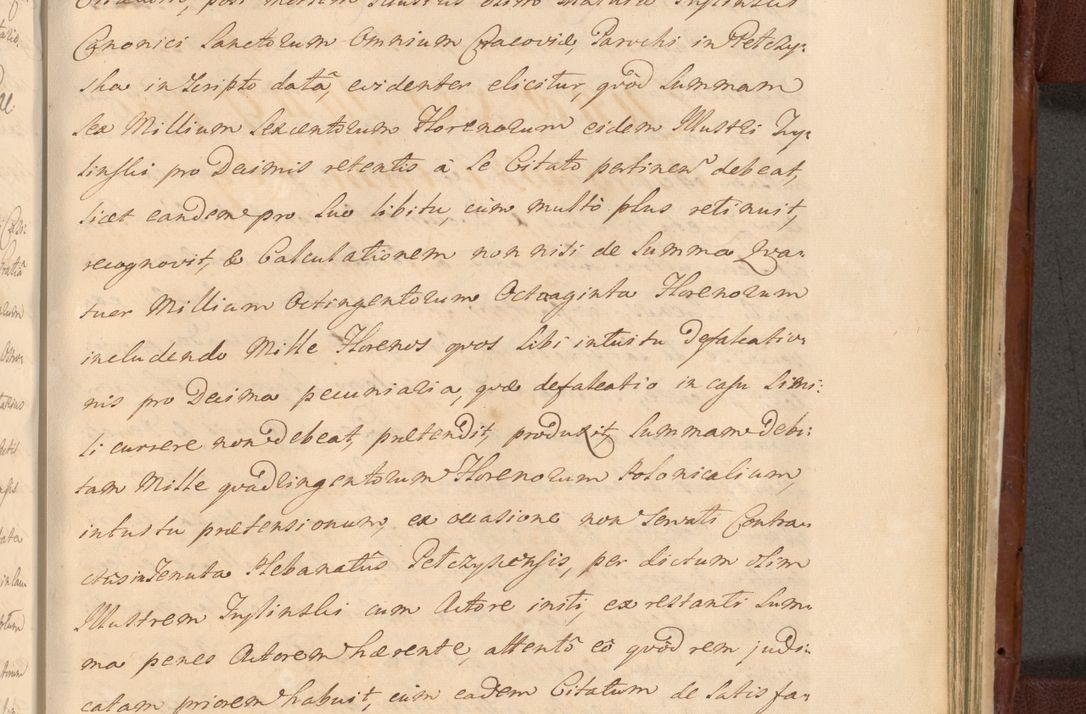 Canonici Sanctorum Omnium Cracoviæ, Parochi in Pełczy-
ska in Scripto datâ, evidenter elicitur, quòd Summam
Sex Millium Sexcentorum Florenorum eidem Illustri Try-
linski pro Decimis retentis à Se Citato pertinen debeat,
licet eandem pro Suo libitu, cùm multò plus retinuit,
recognovit, & Calculationem non nisi de Summa Qua-
tuor Millium Octingentorum Octaaginta Florenorum
includendo Mille Florenos quos Sibi intuitu Defalcatio-
nis pro Decima pecuniaria, quæ defalcatio in casu Simi:
li currere non debeat, prætendit, produxit, Summam Debi:
tam Mille quadringentorum Florenorum Polonicalium,
intuitu prætensionum, ex occasione non Servati Contra-
ctus in Tenuta Plebanatûs Pełczyscensis, per dictum Olim
Illustrem Trylinski cum Actore initi, ex restanti Sum-
ma penes Actorem hærente, attentò eò quòd rem judi:
catam priorem habuit, cùm eadem Citatum de Satisfa-